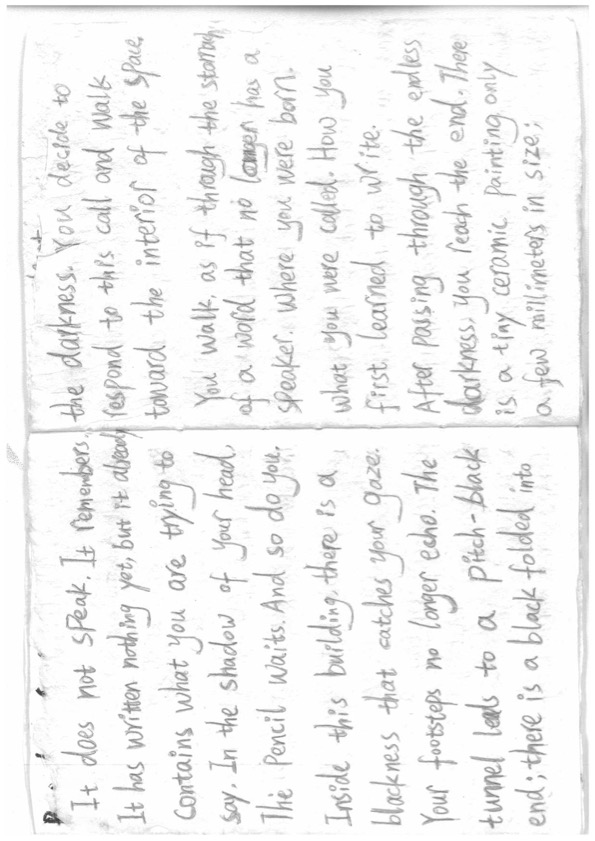 It does not speak. It remembers.
It has written nothing yet, but it already
contains what you are trying to
say. In the shadow of your head,
The Pencil waits. And so do you.
Inside this building, there is a
blackness that catches your gaze.
Your footsteps no longer echo. The
tunnel leads to a pitch-black
end; there is a black folded into
the darkness. You decide to
respond to this call and walk
toward the interior of the space.
You walk, as if through the stomach
of a word that no longer has a
speaker. Where you were born.
what you were called. How you
first learned to write.
After passing through the endless
darkness, you reach the end. There
is a tiny ceramic painting only
a few millimeters in size;